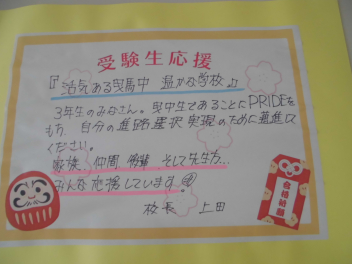 受験生応援
『活気ある与馬中 温かな学校』
3年生のみなさん。与中生であることにPRIDEを
もち、自分の進路選択実現のために邁進して
ください。
家族、仲間、後輩、そして先生方…
みんな応援しています!
校長 上田
合格祈願